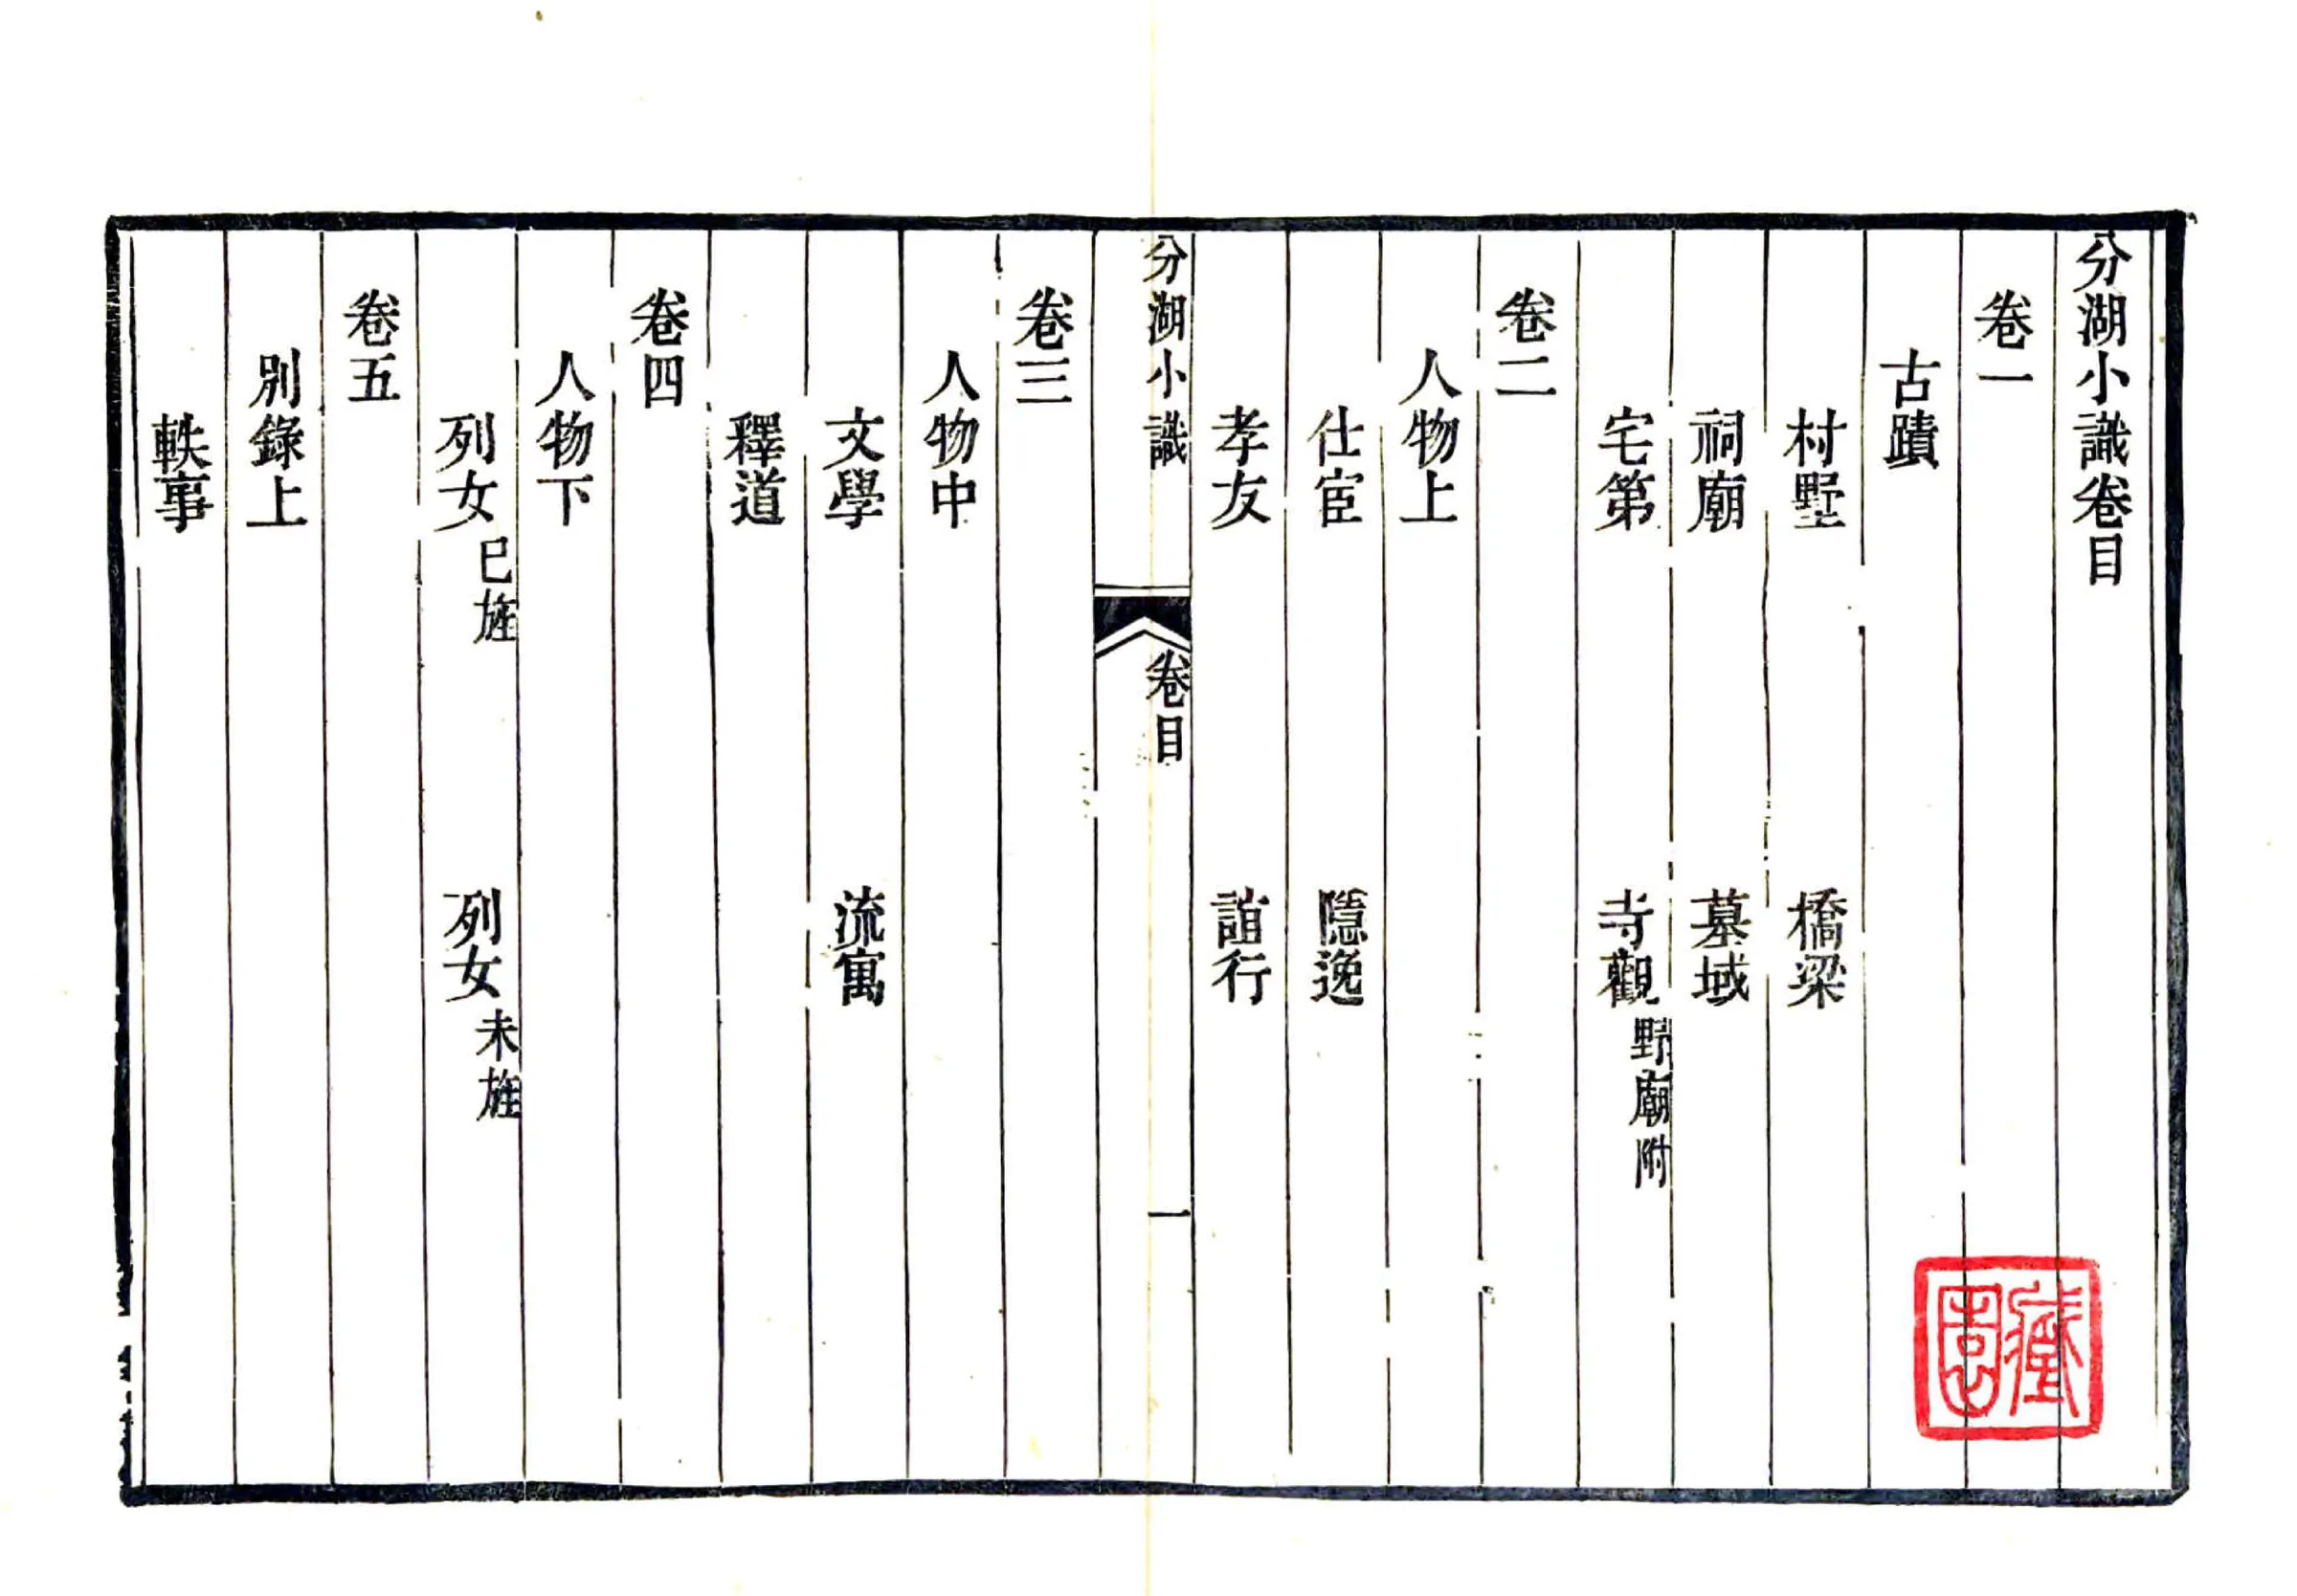 分湖小識卷目
卷一
古蹟
村墅　橋梁
祠廟　墓域
宅第　寺觀野廟附
卷二
人物上
仕宦　隱逸
孝友　誼行
分湖小識　卷目　一
卷三
人物中
文學　流寓
釋道
卷四
人物下
列女已旌　列女未旌
卷五
別錄上
軼事